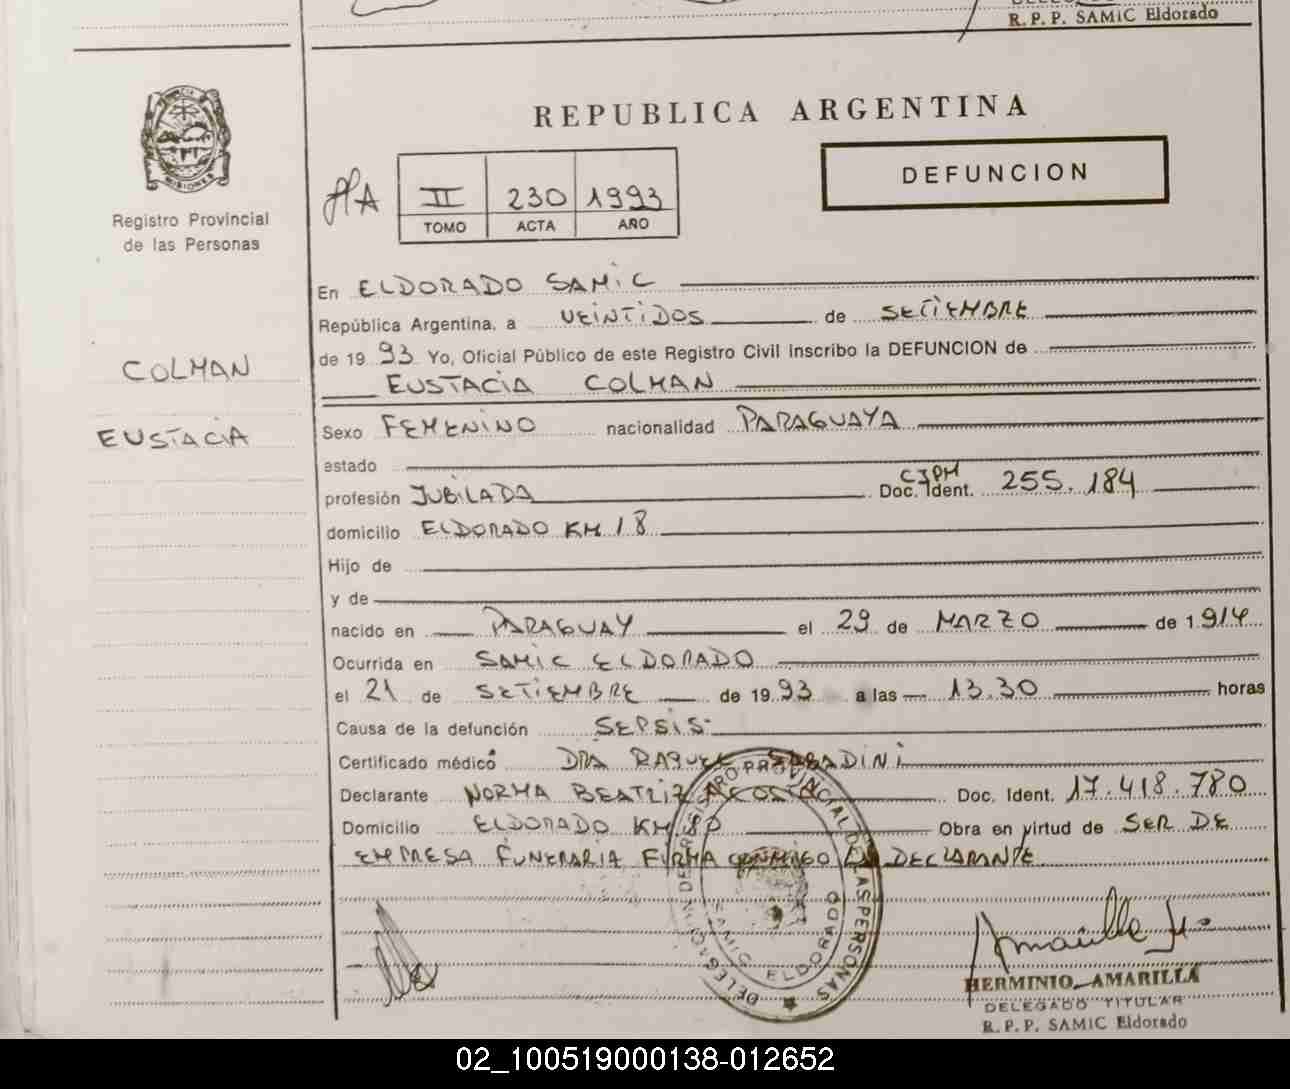 R. P. P. SAMIC Eldorado
REPUBLICA ARGENTINA
DEFUNCION
II 230 1993
TOMO ACTA AÑO
MISIONES
Registro Provincial
de las Personas
COLMAN
EUSTACIA
En ELDORADO SAMIC
República Argentina, a VEINTIDOS de SETIEMBRE
de 19 93 Yo, Oficial Público de este Registro Civil inscribo la DEFUNCION de
EUSTACIA COLMAN
Sexo FEMENINO nacionalidad PARAGUAYA
estado
profesión JUBILADA CIPM Doc. Ident. 255.184
domicilio ELDORADO KM 18
Hijo de
y de
nacido en PARAGUAY el 29 de MARZO de 1.914
Ocurrida en SAMIC ELDORADO
el 21 de SETIEMBRE de 19 93 a las 13.30 horas
Causa de la defunción SEPSIS
Certificado médico DRA RAQUEL SABADINI
Declarante NORMA BEATRIZ ACOSTA Doc. Ident. 17.418.780
Domicilio ELDORADO KM Obra en virtud de SER DE
EMPRESA FUNERARIA FIRMA CONMIGO LA DECLARANTE
DELEGACION DE REGISTRO PROVINCIAL DE LAS PERSONAS
SAMIC ELDORADO
HERMINIO AMARILLA
DELEGADO TITULAR
R. P. P. SAMIC Eldorado
02_100519000138-012652